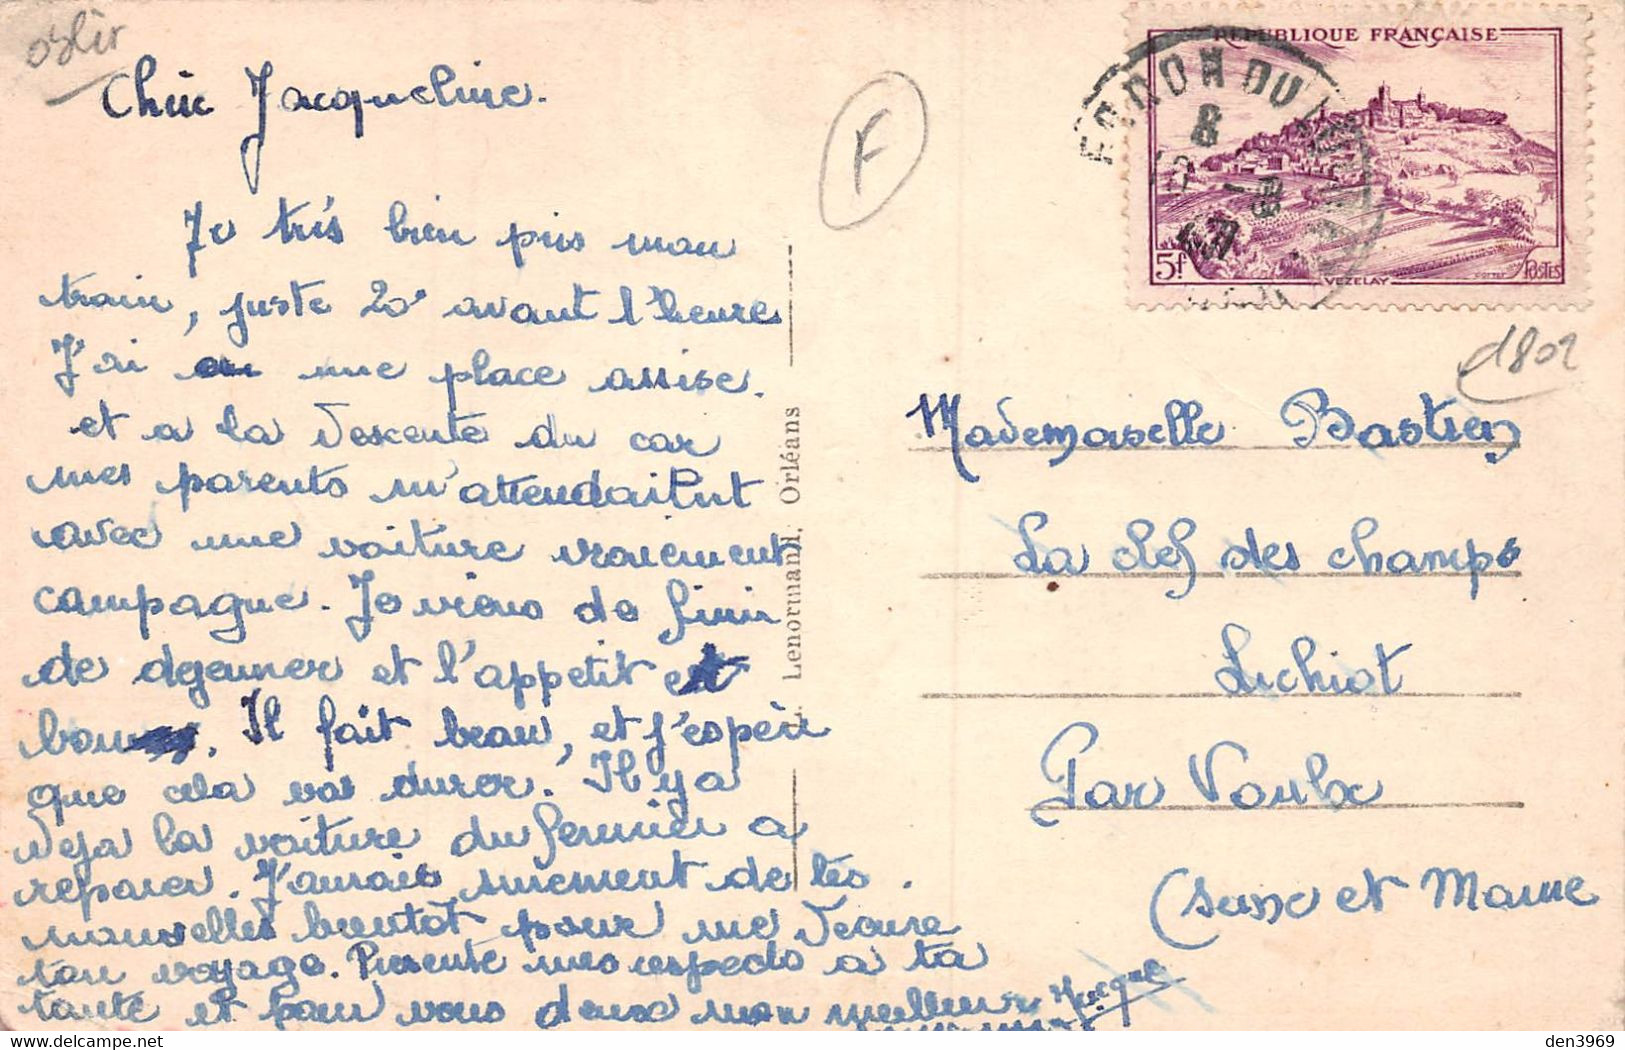 Chère Jacqueline.
J'ai très bien pris mon
train, juste 20' avant l'heure
J'ai une place assise.
et a la descente du car
mes parents m'attendaient
avec une voiture vraiement
campagne. Je viens de finir
de dejeuner et l'appetit est
bon. Il fait beau, et j'espère
que cela va durer. Il y a
deja la voiture du fermier a
reparer. J'aurais surement de tes
nouvelles bientot pour me decrire
ton voyage. Presente mes respects a ta
tante et pour vous deux mon meilleur
F
RÉPUBLIQUE FRANÇAISE
5f
VEZELAY
POSTES
d802
Mademoiselle Bastien
La clef des champs
Luchiot
Par Voulx
(Seine et Marne
Lenormand, Orléans
den3969